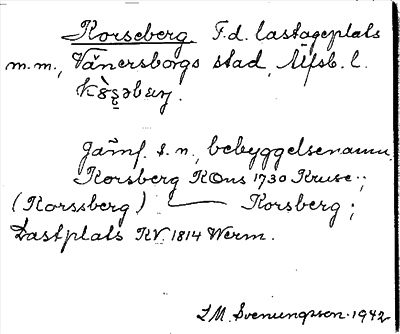 Korseberg F.d. lastageplats
m.m., Vänersborgs stad, Älfsb. l.
Jämf. s. n., bebyggelsenamn.
Korsberg KOns 1730 Kruse.;
(Korssberg) Korsberg;
Lastplats RV. 1814 Werm.
I.M. Svenungsson. 1942